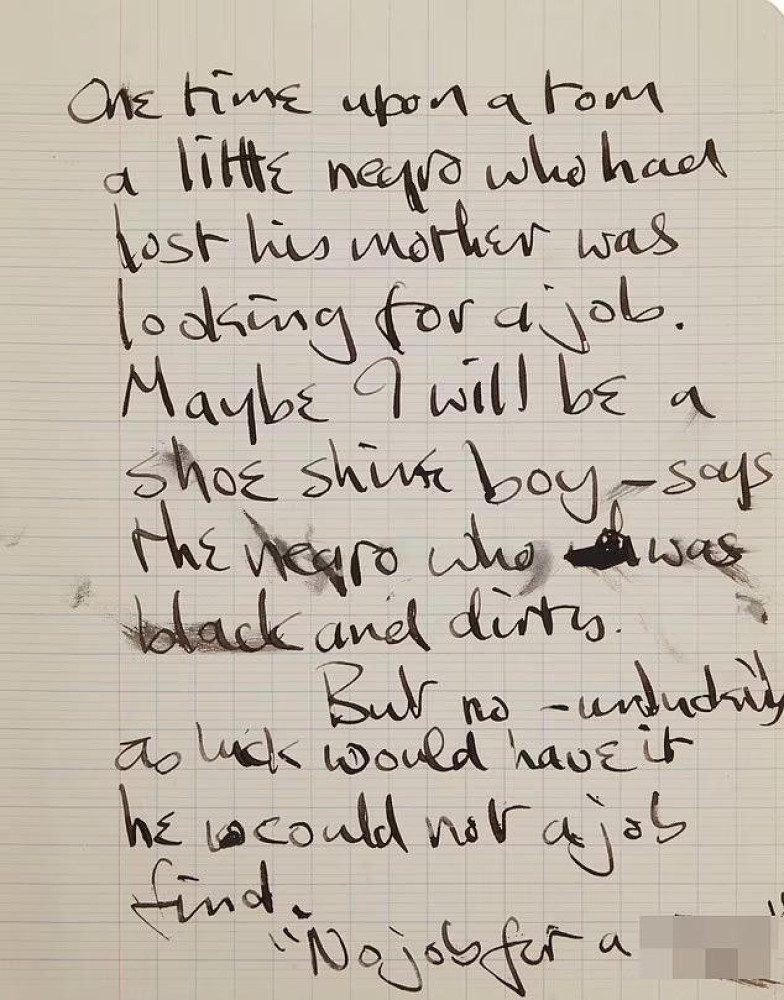 One time upon a tom
a little negro who had
lost his mother was
looking for a job.
Maybe I will be a
shoe shine boy – says
the negro who was
black and dirty.
But no – unluckily
as luck would have it
he could not a job
find.
"No job for a